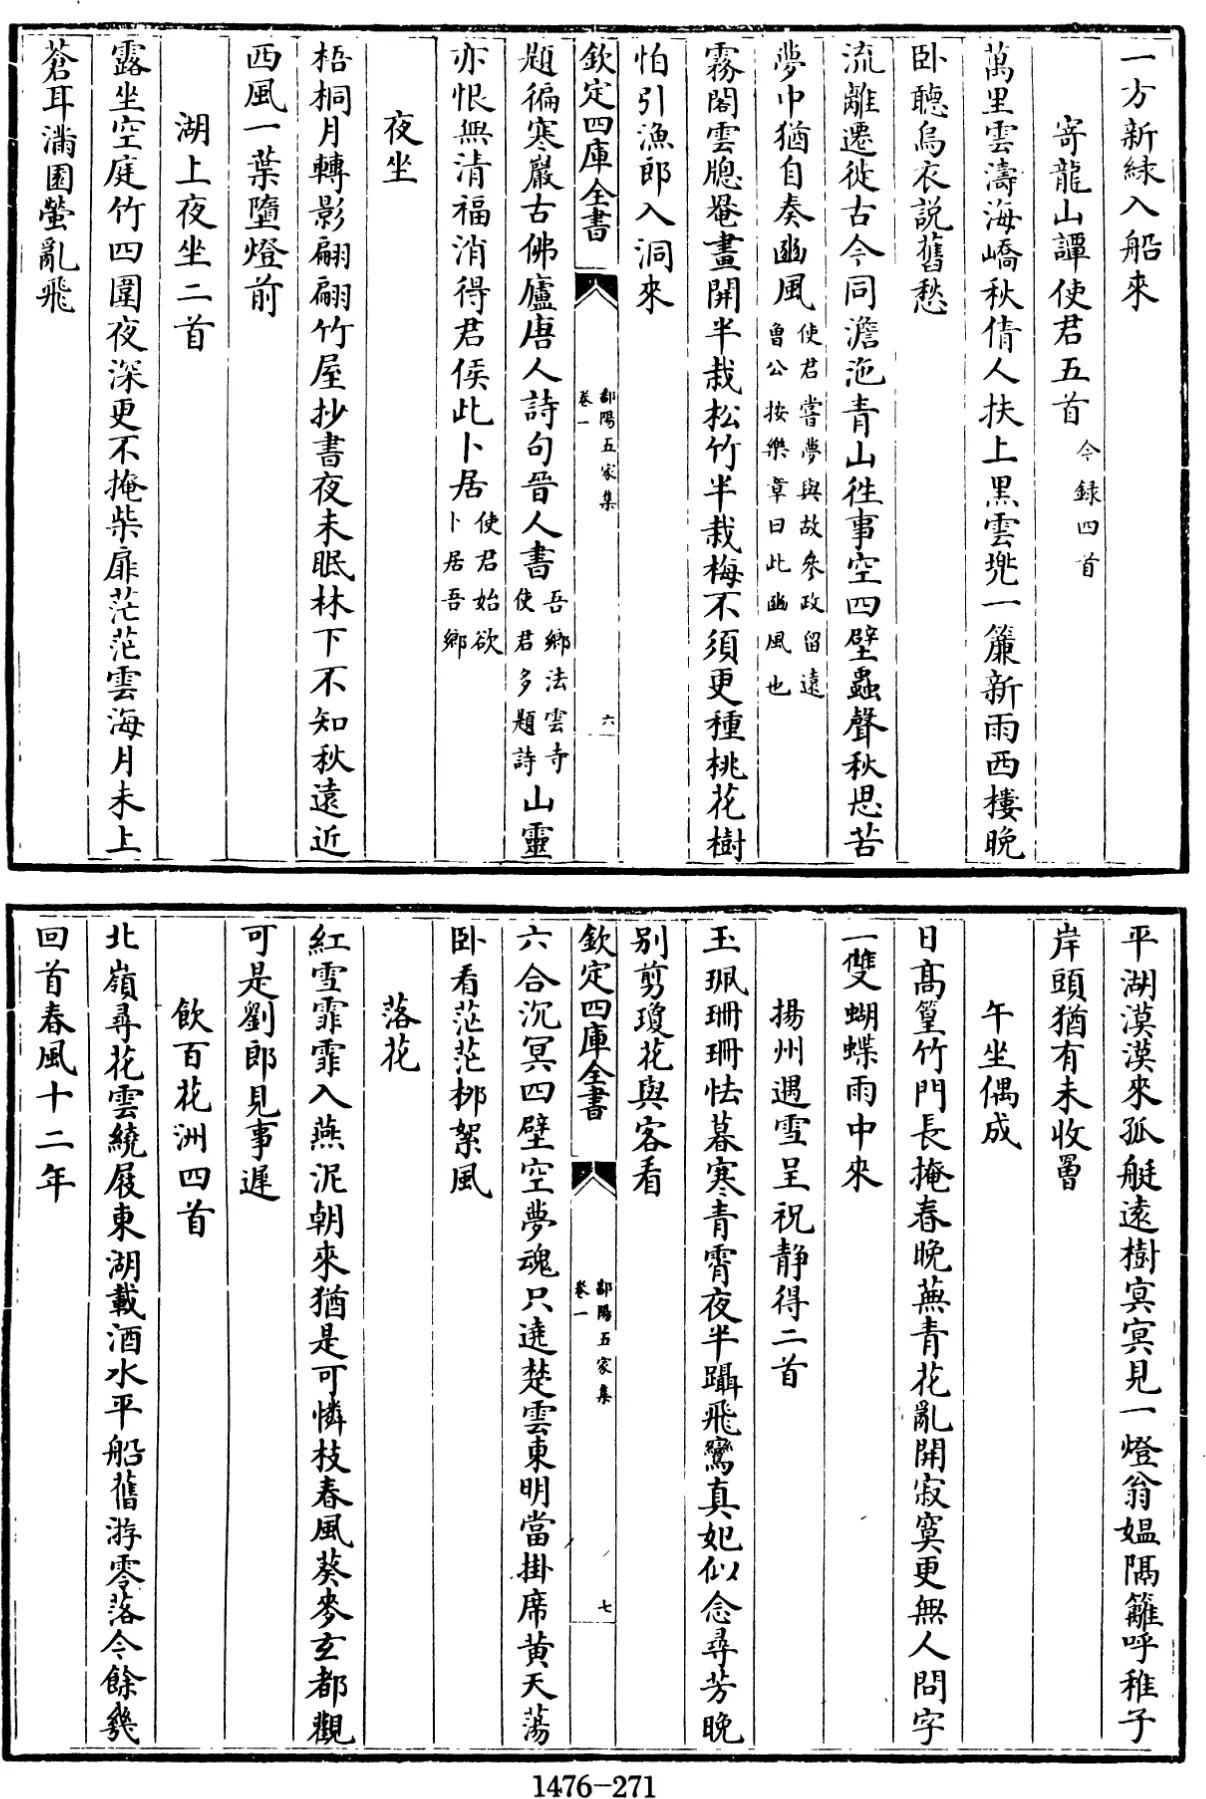 一方新緑入船來
寄龍山譚使君五首今録四首
萬里雲濤海嶠秋倩人扶上黒雲兠一簾新雨西樓晩
卧聽烏衣説舊愁
流離遷徙古今同澹沲青山徃事空四壁蟲聲秋思苦
夢中猶自奏豳風使君嘗夢與故參政留遠
魯公按樂章曰此豳風也
霧閣雲牕罨畫開半栽松竹半栽梅不須更種桃花樹
怕引漁郎入洞來
欽定四庫全書
鄱陽五家集
卷一
六
題徧寒巖古佛廬唐人詩句晉人書吾鄉法雲寺
使君多題詩山靈
亦恨無清福消得君侯此卜居使君始欲
卜居吾鄉
夜坐
梧桐月轉影翩翩竹屋抄書夜未眠林下不知秋遠近
西風一葉墮燈前
湖上夜坐二首
露坐空庭竹四圍夜深更不掩柴扉茫茫雲海月未上
蒼耳滿園螢亂飛
平湖漠漠來孤艇遠樹冥冥見一燈翁媪隔籬呼稚子
岸頭猶有未收罾
午坐偶成
日髙篁竹門長掩春晩蕪青花亂開寂寞更無人問字
一雙蝴蝶雨中來
揚州遇雪呈祝静得二首
玉珮珊珊怯暮寒青霄夜半躡飛鸞真妃似念尋芳晩
别剪瓊花與客看
欽定四庫全書
鄱陽五家集
卷一
七
六合沉冥四壁空夢魂只遶楚雲東明當掛席黄天蕩
卧看茫茫栁絮風
落花
紅雪霏霏入燕泥朝來猶是可憐枝春風葵麥玄都觀
可是劉郎見事遲
飲百花洲四首
北嶺尋花雲繞屐東湖載酒水平船舊游零落今餘幾
回首春風十二年
1476-271